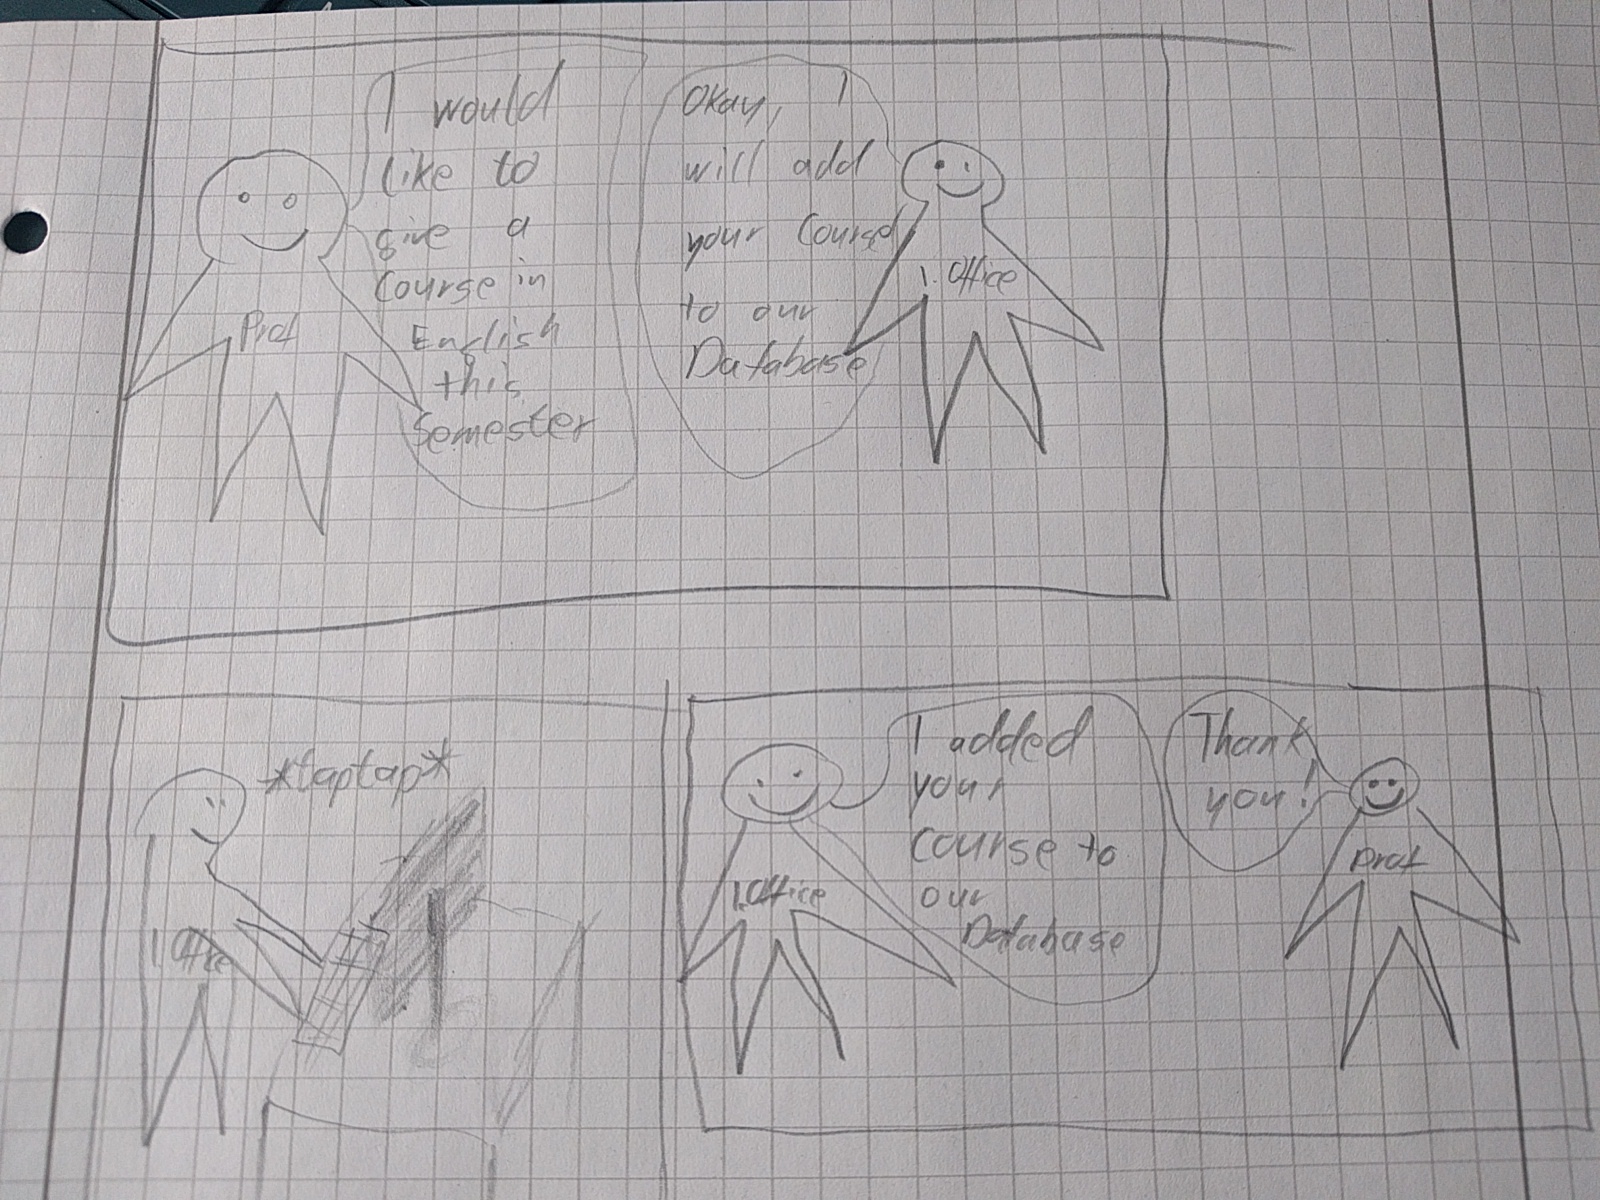 I would
like to
give a
Course in
English
this
Semester
Prof
Okay, I
will add
your Course
to our
Database
I. Office
*taptap*
I. Office
I added
your
course to
our
Database
I. Office
Thank
you!
Prof